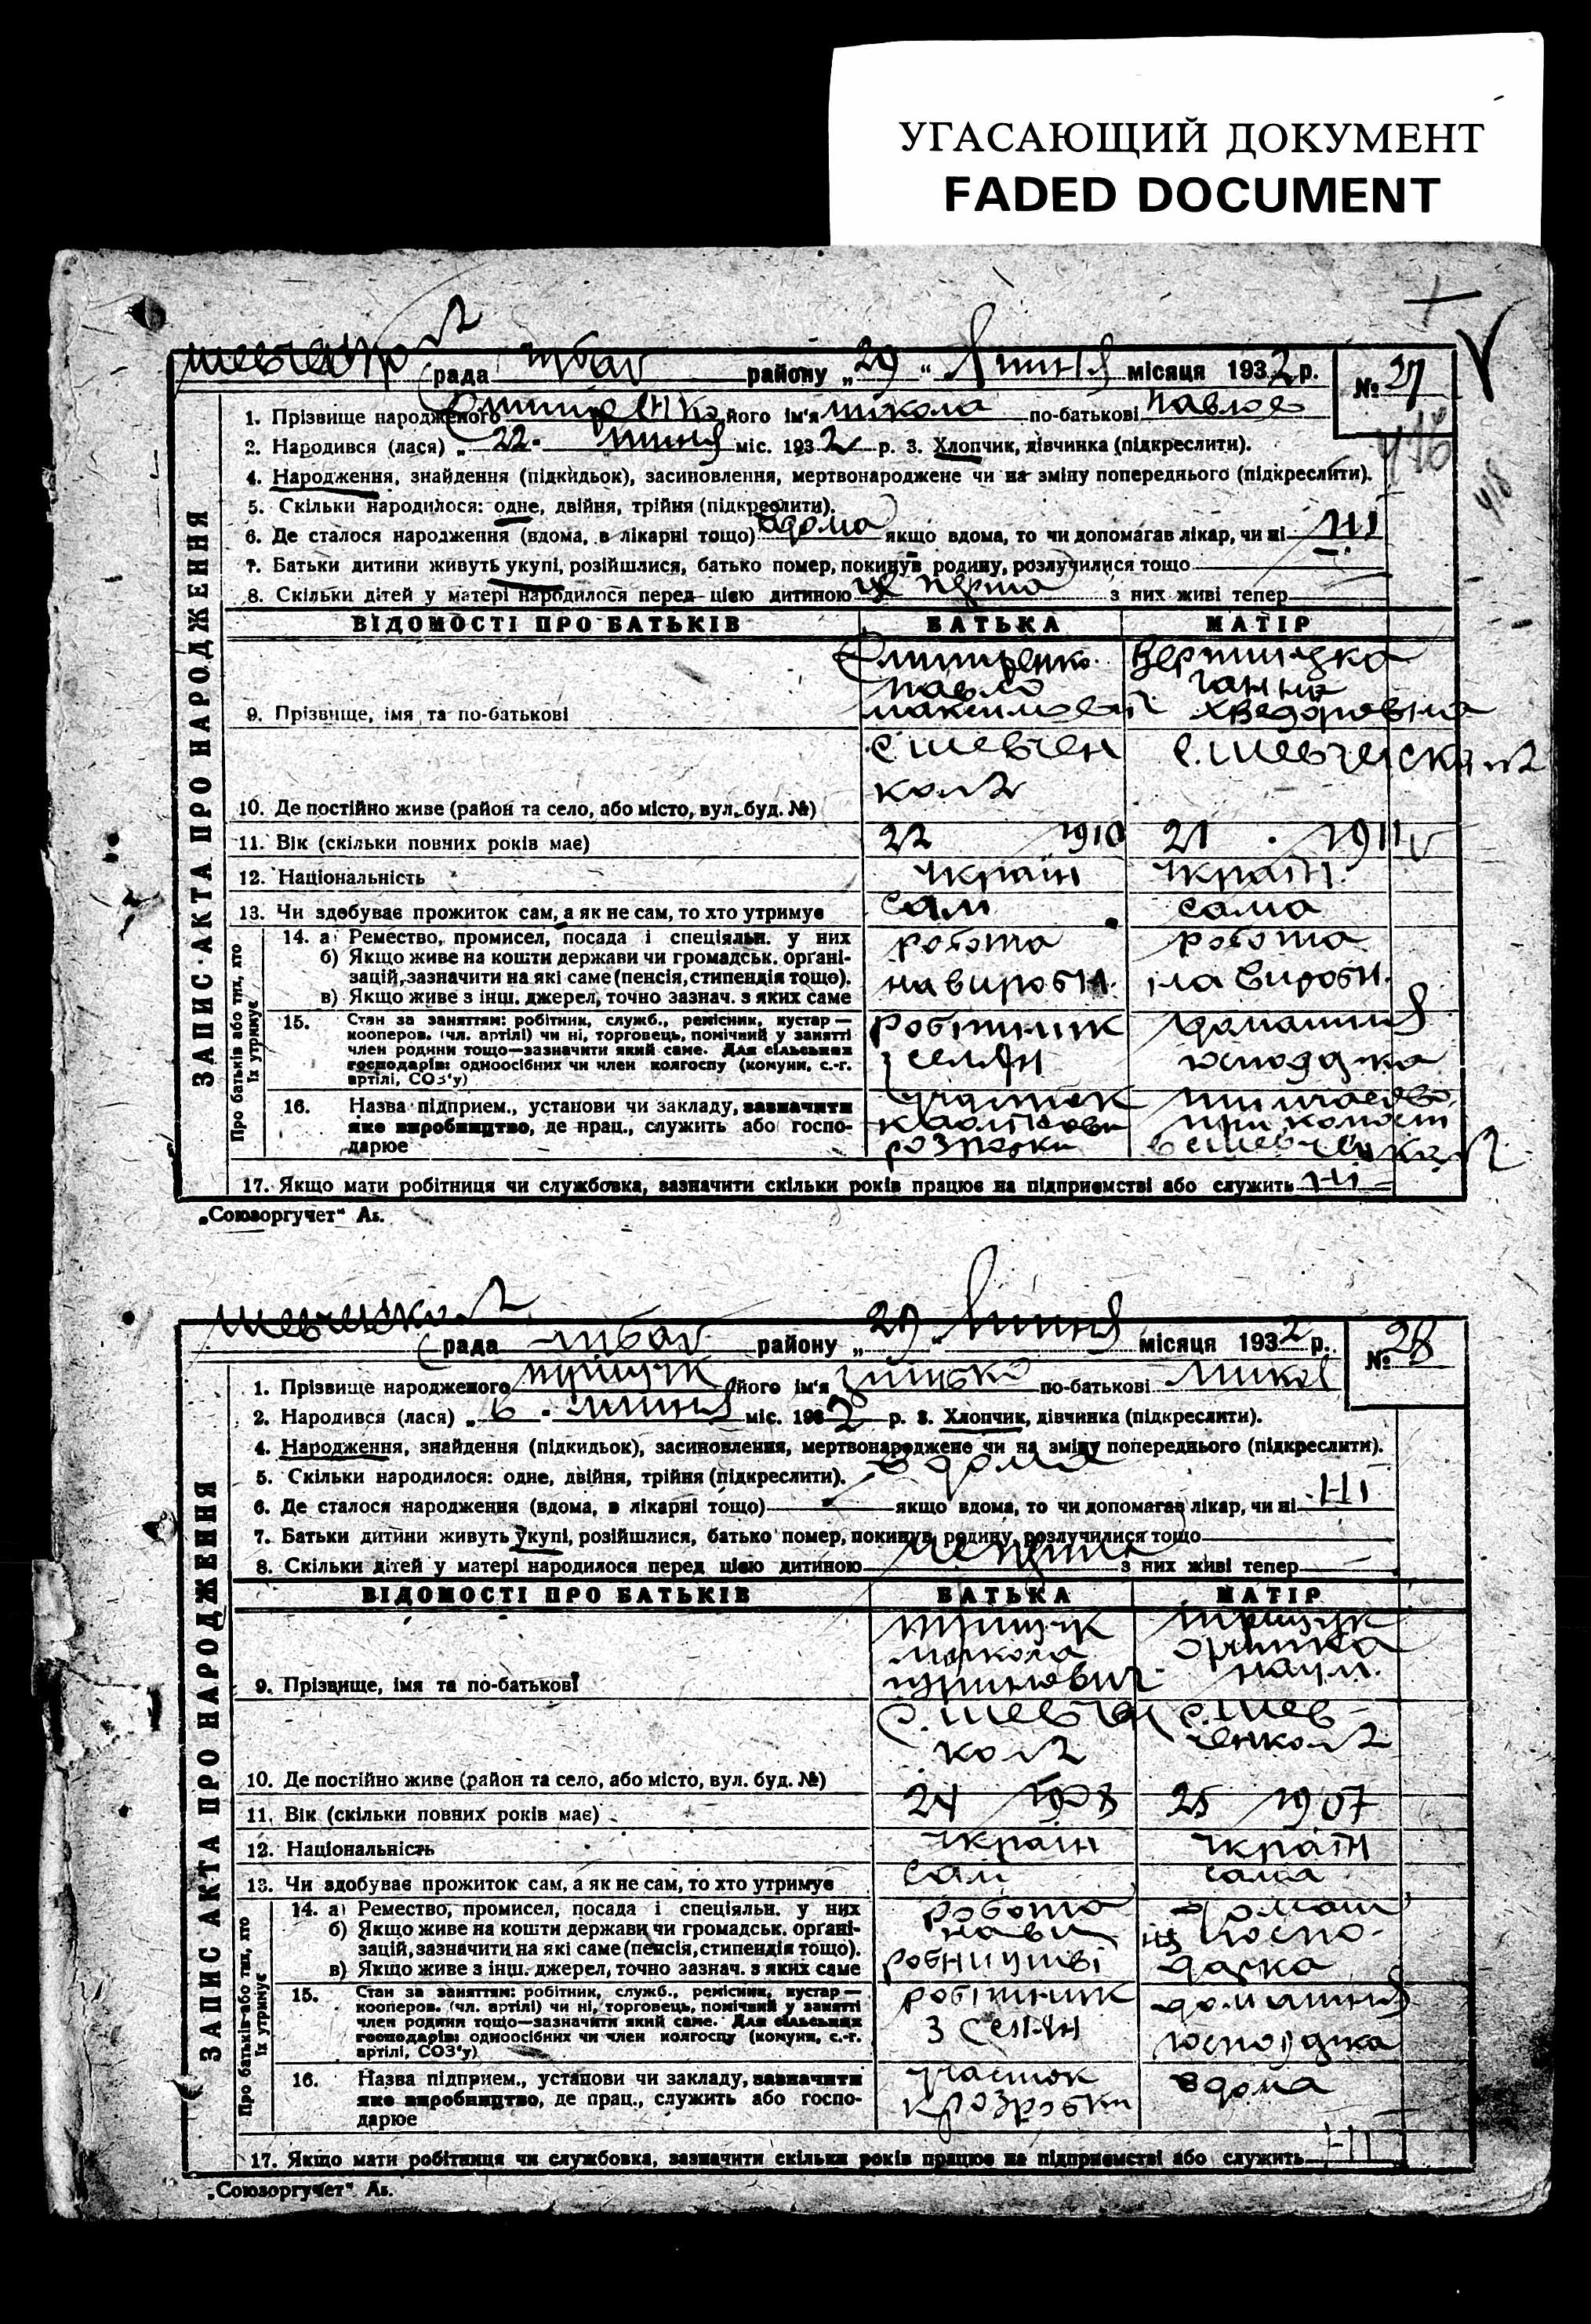 УГАСАЮЩИЙ ДОКУМЕНТ
FADED DOCUMENT
рада района „29“ Липня місяця 1932 р. № 27
1. Прізвище народженого його ім'я микола по-батькові Павлов
2. Народився (лася) „22. липня міс. 1932 р. 3. Хлопчик, дівчинка (підкреслити).
4. Народження, знайдення (підкидьок), засиновлення, мертвонароджене чи на зміну попереднього (підкреслити).
5. Скільки народилося: одне, двійня, трійня (підкреслити).
6. Де сталося народження (вдома, в лікарні тощо) вдома якщо вдома, то чи допомагав лікар, чи ні ні
7. Батьки дитини живуть укупі, розійшлися, батько помер, покинув родину, розлучилися тощо
8. Скільки дітей у матері народилося перед цією дитиною це перша з них живі тепер
ВІДОМОСТІ ПРО БАТЬКІВ БАТЬКА МАТІР
павло ганна
9. Прізвище, імя та по-батькові максимович хведоровна
с. шевчен
ко №2
10. Де постійно живе (район та село, або місто, вул. буд. №)
11. Вік (скільки повних років має) 22 1910 21 1911
12. Національність україн україн.
13. Чи здобуває прожиток сам, а як не сам, то хто утримує сам сама
14. а) Ремество, промисел, посада і спеціяльн. у них робота робота
б) Якщо живе на кошти держави чи громадськ. орґані-
зацій, зазначити на які саме (пенсія, стипендія тощо). на виробн. на виробн.
в) Якщо живе з інш. джерел, точно зазнач. з яких саме
15. Стан за заняттям: робітник, служб., ремісник, кустар— робітник домашня
кооперов. (чл. артілі) чи ні, торговець, помічний у занятті
член родини тощо—зазначити який саме. Для сільських з селян
господарів: одноосібних чи член колгоспу (комуни, с.-г.
артілі, СОЗ'у)
16. Назва підприєм., установи чи закладу, зазначити участок
яке виробництво, де прац., служить або госпо-
дарює
17. Якщо мати робітниця чи службовка, зазначити скільки років працює на підприємстві або служить ні
„Союзоргучет“ Аг.
ЗАПИС АКТА ПРО НАРОДЖЕННЯ
Про батьків або тих, хто
їх утримує
рада району „29“ Липня місяця 1932 р. № 28
1. Прізвище народженого його ім'я по-батькові Микол
2. Народився (лася) „6. липня міс. 1932 р. 3. Хлопчик, дівчинка (підкреслити).
4. Народження, знайдення (підкидьок), засиновлення, мертвонароджене чи на зміну попереднього (підкреслити).
5. Скільки народилося: одне, двійня, трійня (підкреслити). вдома
6. Де сталося народження (вдома, в лікарні тощо) якщо вдома, то чи допомагав лікар, чи ні ні
7. Батьки дитини живуть укупі, розійшлися, батько помер, покинув родину, розлучилися тощо
8. Скільки дітей у матері народилося перед цією дитиною з них живі тепер
ВІДОМОСТІ ПРО БАТЬКІВ БАТЬКА МАТІР
микола
9. Прізвище, імя та по-батькові наум.
с. шев
ко №2 ченко №2
10. Де постійно живе (район та село, або місто, вул. буд. №)
11. Вік (скільки повних років має) 24 1908 25 1907
12. Національність україн україн
13. Чи здобуває прожиток сам, а як не сам, то хто утримує сам сама
14. а) Ремество, промисел, посада і спеціяльн. у них робота домаш
б) Якщо живе на кошти держави чи громадськ. орґані- на ви госпо-
зацій, зазначити на які саме (пенсія, стипендія тощо). робництві дарка
в) Якщо живе з інш. джерел, точно зазнач. з яких саме
15. Стан за заняттям: робітник, служб., ремісник, кустар— робітник домашня
кооперов. (чл. артілі) чи ні, торговець, помічний у занятті
член родини тощо—зазначити який саме. Для сільських з селян
господарів: одноосібних чи член колгоспу (комуни, с.-г.
артілі, СОЗ'у)
16. Назва підприєм., установи чи закладу, зазначити участок вдома
яке виробництво, де прац., служить або госпо-
дарює
17. Якщо мати робітниця чи службовка, зазначити скільки років працює на підприємстві або служить ні
„Союзоргучет“ Аг.
ЗАПИС АКТА ПРО НАРОДЖЕННЯ
Про батьків або тих, хто
їх утримує